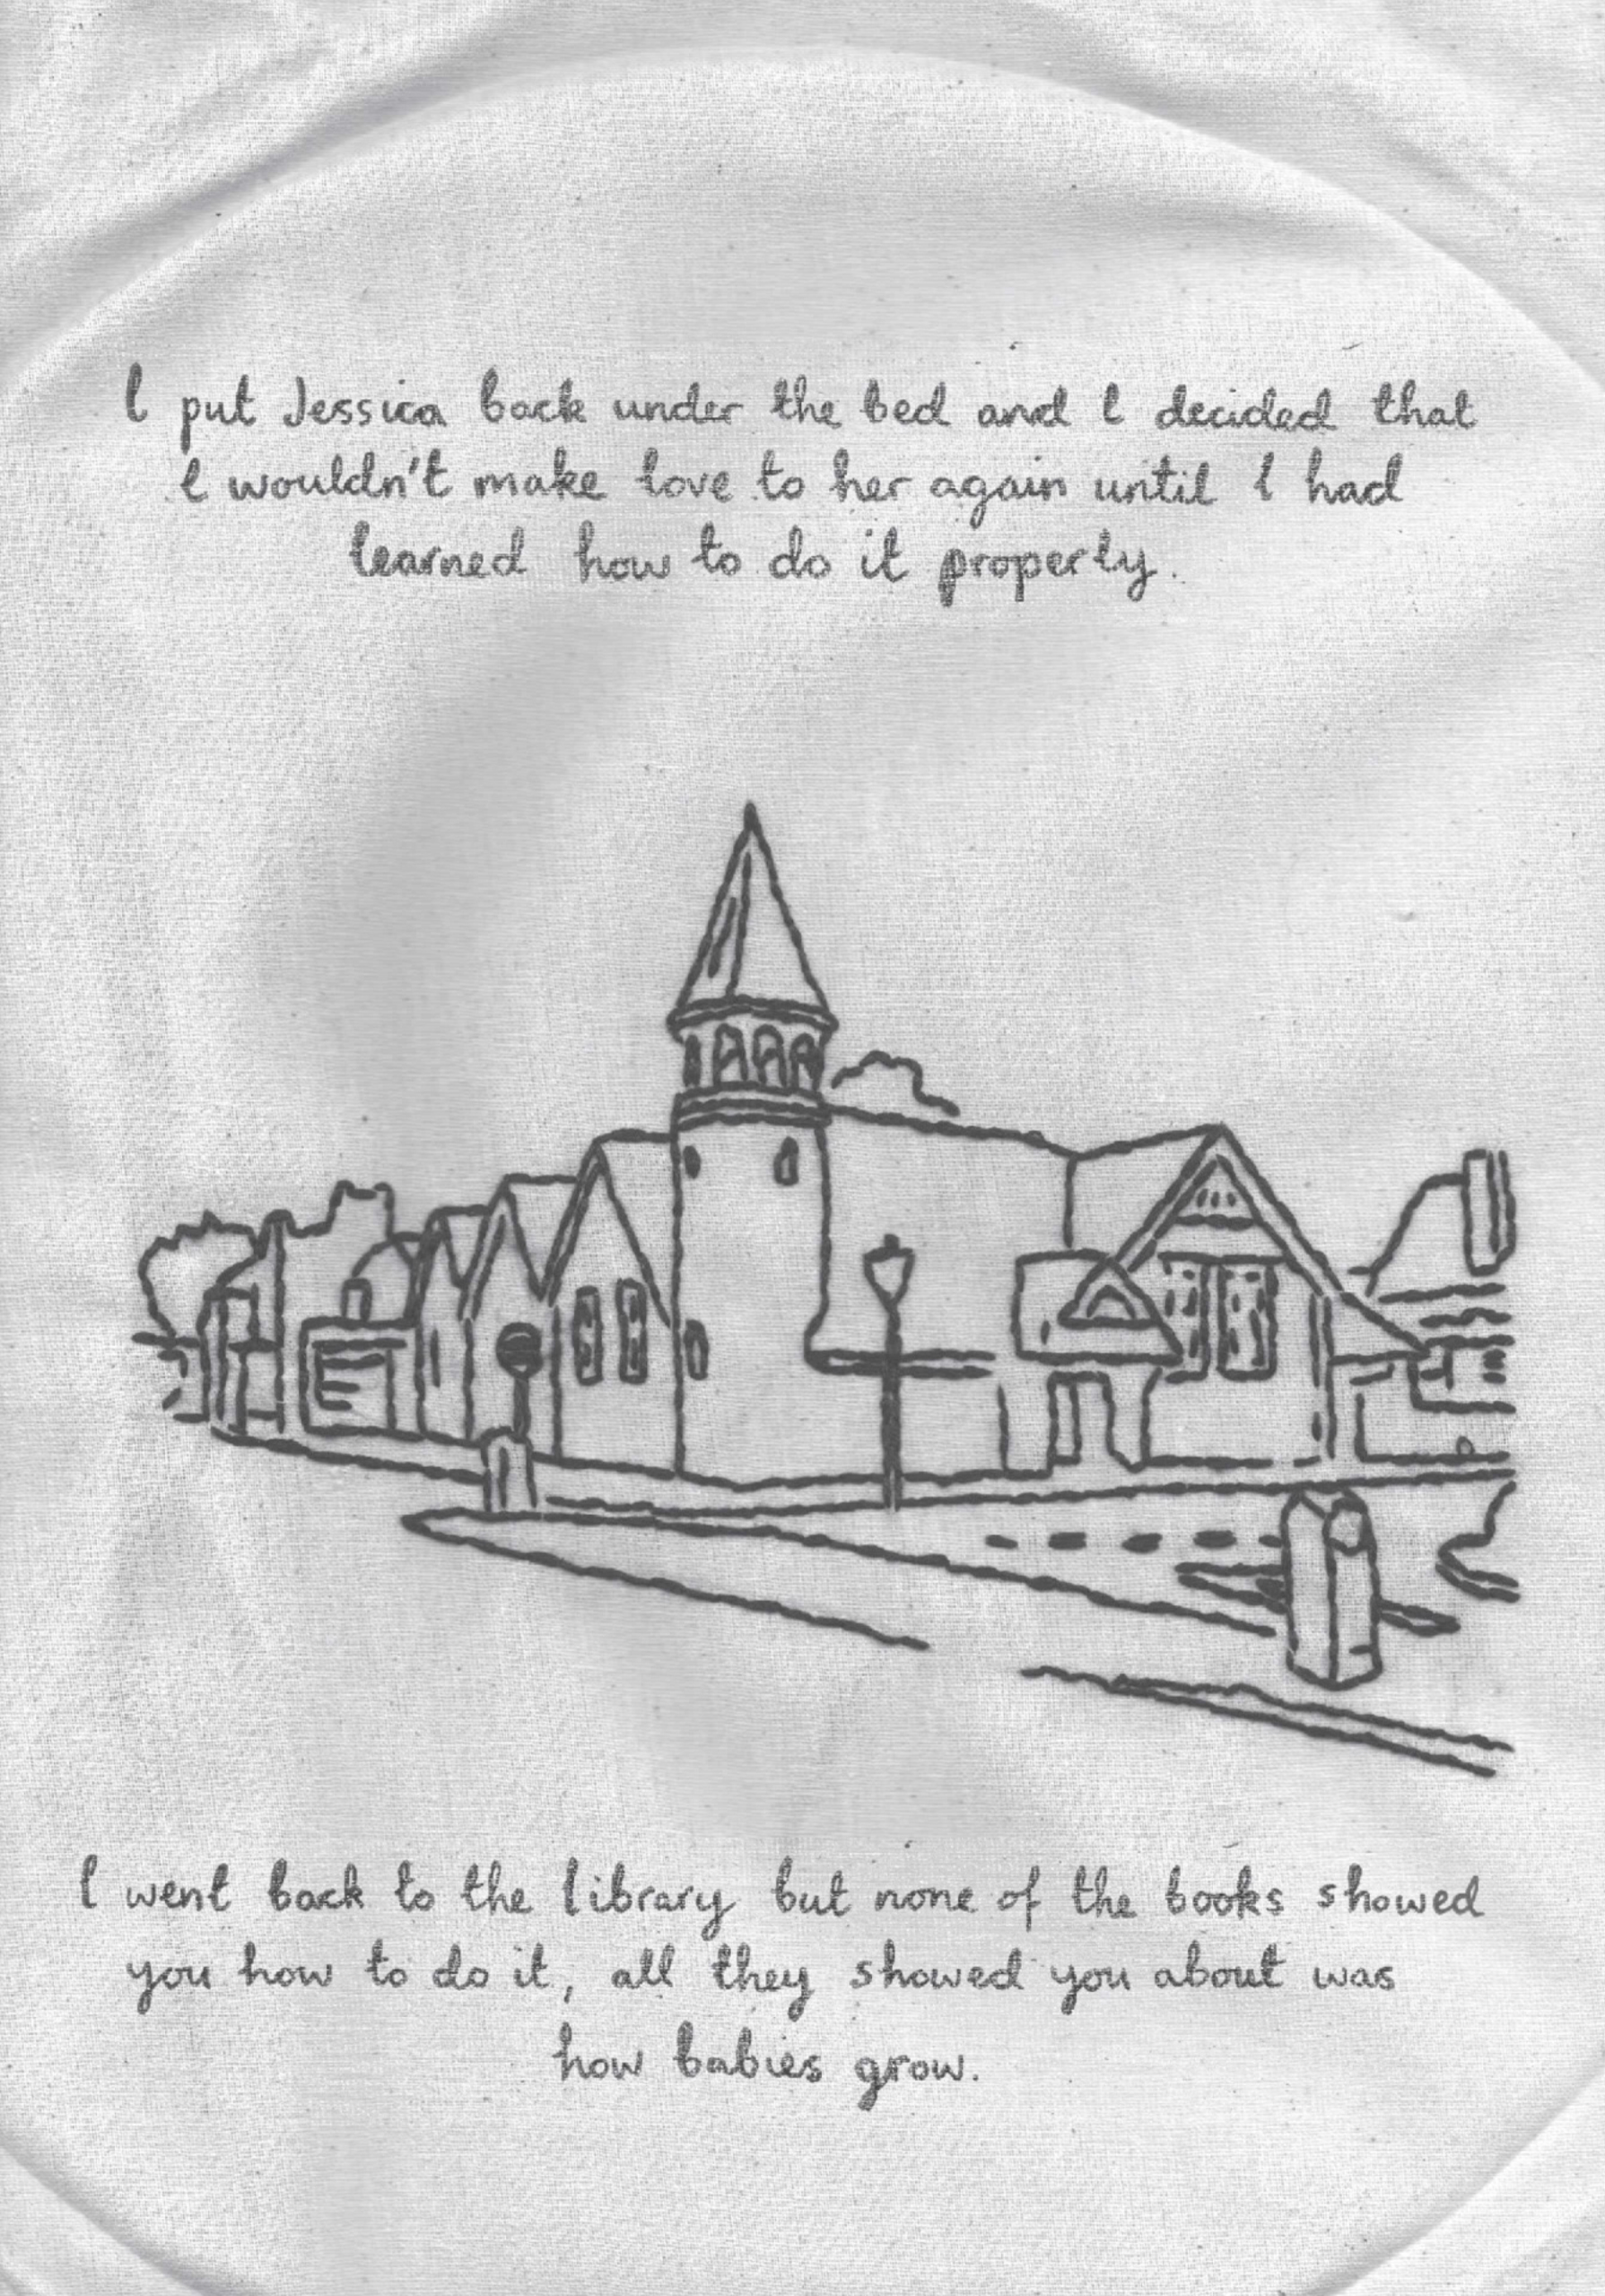 I put Jessica back under the bed and I decided that
I wouldn't make love to her again until I had
learned how to do it properly.
I went back to the library but none of the books showed
you how to do it, all they showed you about was
how babies grow.